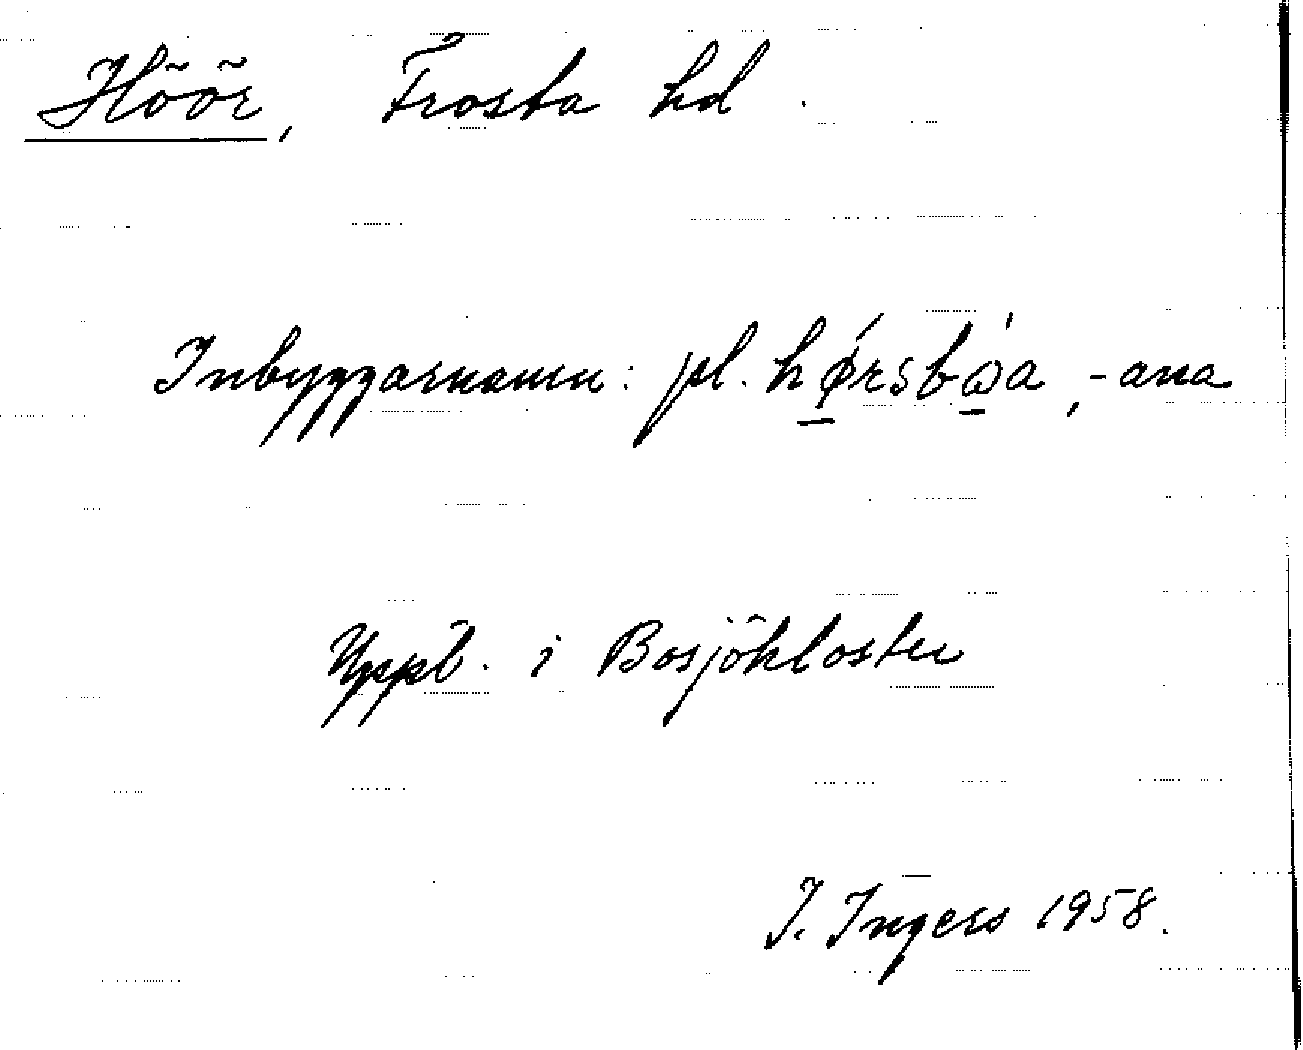 Höör, Frosta hd.
Inbyggarnamn: pl. hǿrsbòa, -ana
Uppb. i Bosjökloster
I. Ingers 1958.